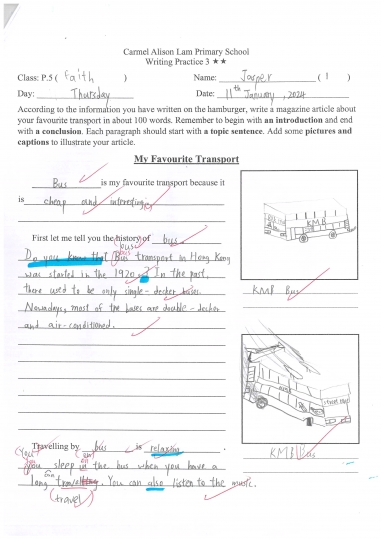 Carmel Alison Lam Primary School
Writing Practice 3 ★★
Class: P.5 ( Faith ) Name: Jasper ( 1 )
Day: Thursday Date: 11th January, 2024
According to the information you have written on the hamburger, write a magazine article about
your favourite transport in about 100 words. Remember to begin with an introduction and end
with a conclusion. Each paragraph should start with a topic sentence. Add some pictures and
captions to illustrate your article.
My Favourite Transport
Bus is my favourite transport because it
is cheap and interesting.
KMB
First let me tell you the history of bus.
bus
Do you know that Bus transport in Hong Kong
was started in the 1920 ? In the past,
KMB Bus
there used to be only single-decker buses.
Nowadays, most of the buses are double-decker
and air-conditioned.
KMB Bus
Travelling by bus is relaxing.
(You) can on
you sleep in the bus when you have a
long travelling. You can also listen to the music.
(travel)